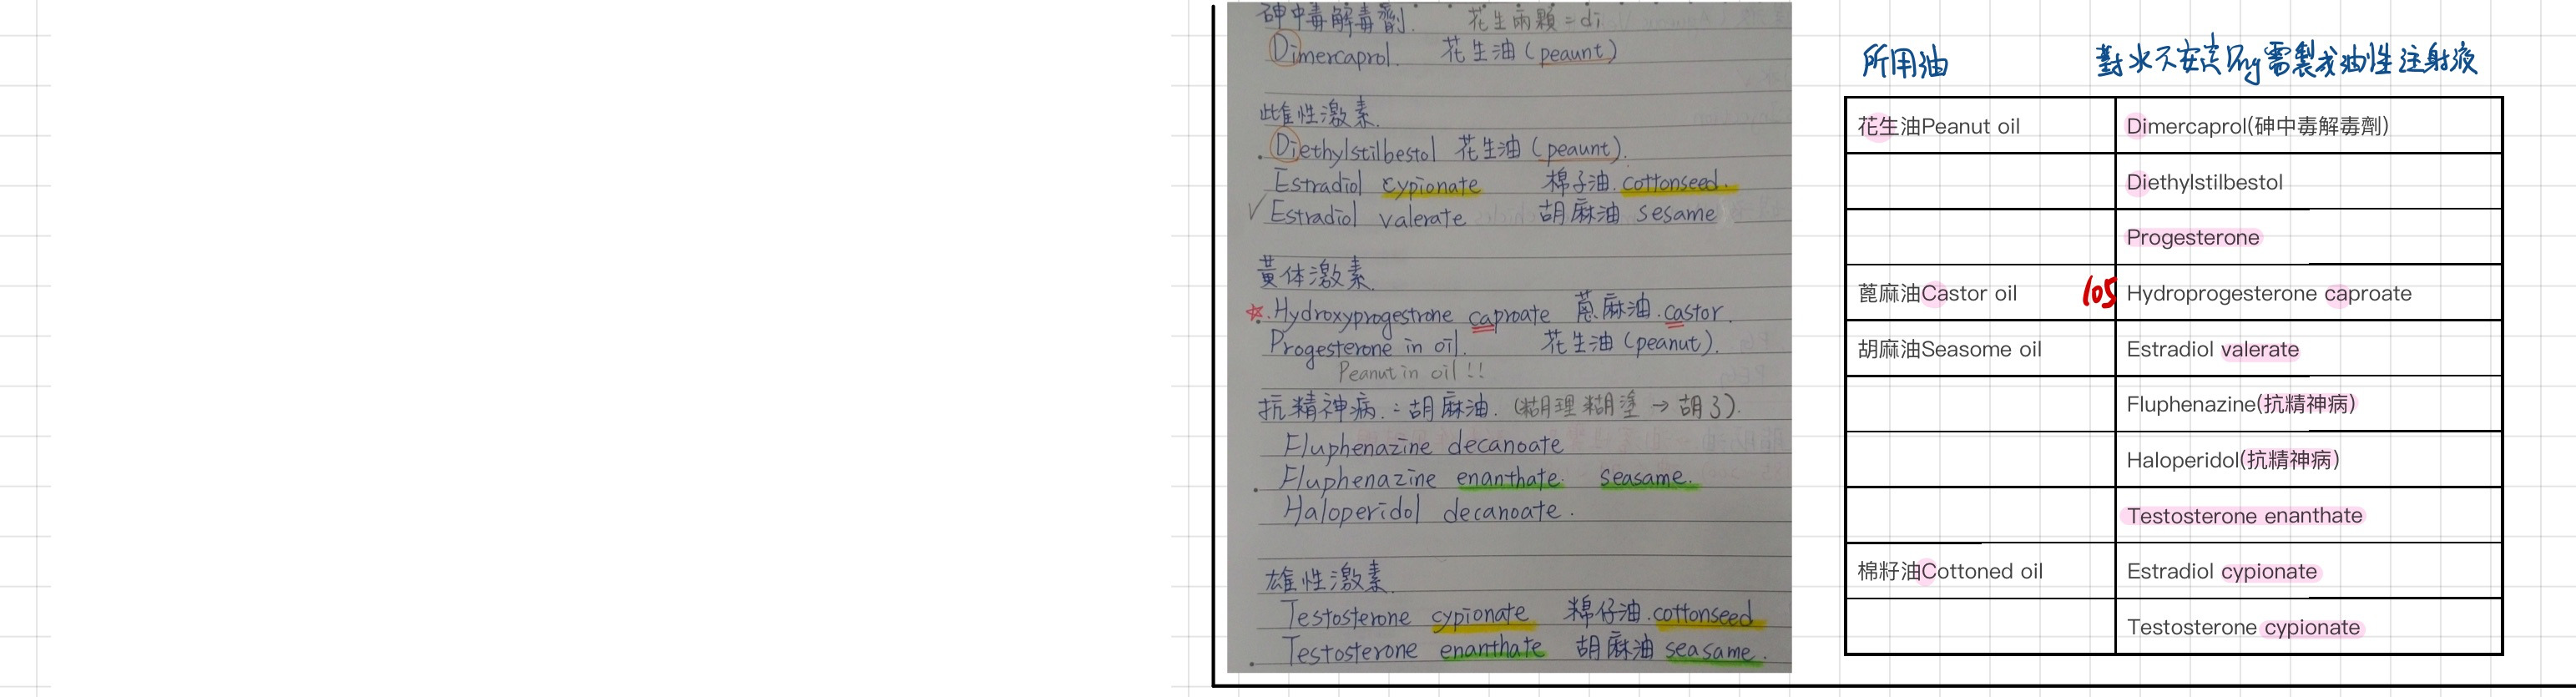 砷中毒解毒劑. 花生兩顆=di
Dimercaprol. 花生油(peaunt)
雌性激素.
Diethylstilbestol 花生油(peaunt).
Estradiol cypionate 棉子油.cottonseed.
✓Estradiol valerate 胡麻油 sesame
黃体激素.
☆.Hydroxyprogestrone caproate 蓖麻油.castor.
Progesterone in oil. 花生油(peanut).
Peanut in oil!!
抗精神病.:胡麻油.(糊理糊塗→胡3).
Fluphenazine decanoate
Fluphenazine enanthate. seasame.
Haloperidol decanoate.
雄性激素.
Testosterone cypionate 棉仔油.cottonseed
Testosterone enanthate 胡麻油 seasame.
所用油 對水不安定Drug需製成油性注射液
花生油Peanut oil Dimercaprol(砷中毒解毒劑)
Diethylstilbestol
Progesterone
蓖麻油Castor oil 105 Hydroprogesterone caproate
胡麻油Seasome oil Estradiol valerate
Fluphenazine(抗精神病)
Haloperidol(抗精神病)
Testosterone enanthate
棉籽油Cottoned oil Estradiol cypionate
Testosterone cypionate